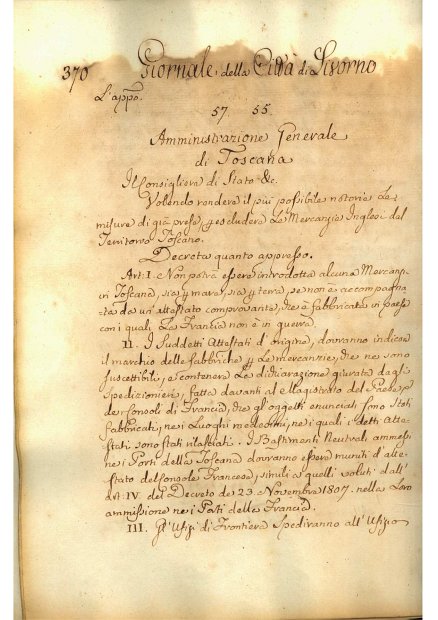 370 Giornale della Città di Livorno
L'appo.
57. 55.
Amministrazione Generale
di Toscana
Il Consigliere di Stato &c.
Volendo rendere il più possibile notorie Le
misure di già prese, p escludere Le Mercanzie Inglesi dal
Territorio Toscano.
Decreta quanto appresso.
Art: I. Non potrà essere introdotta alcuna Mercanzia
in Toscana, sia p mare, sia p terra, se non è accompagna
ta da un'attestato comprovante, che è fabbricata in paesi
con i quali La Francia non è in guerra
II. I Suddetti Attestati d'origine, dovranno indicare
il marchio delle fabbriche p Le mercanzie, che ne sono
suscettibili, e contenere La dichiarazione giurata dagli
Spedizionieri, fatta davanti al Magistrato del Paese, e
dei Consoli di Francia, che gli oggetti enunciati sono stati
fabbricati, nei Luoghi medesimi, nei quali i detti Atte-
stati sono stati rilasciati. I Bastimenti Neutrali ammessi
nei Porti della Toscana dovranno essere muniti d'atte-
stato del Console Francese, simili a quelli voluti dall'
Art: IV. del Decreto de 23. Novembre 1807. nella Loro
ammissione nei Porti della Francia.
III. Gl'Ufizj di Frontiera Spediranno all'Ufizio